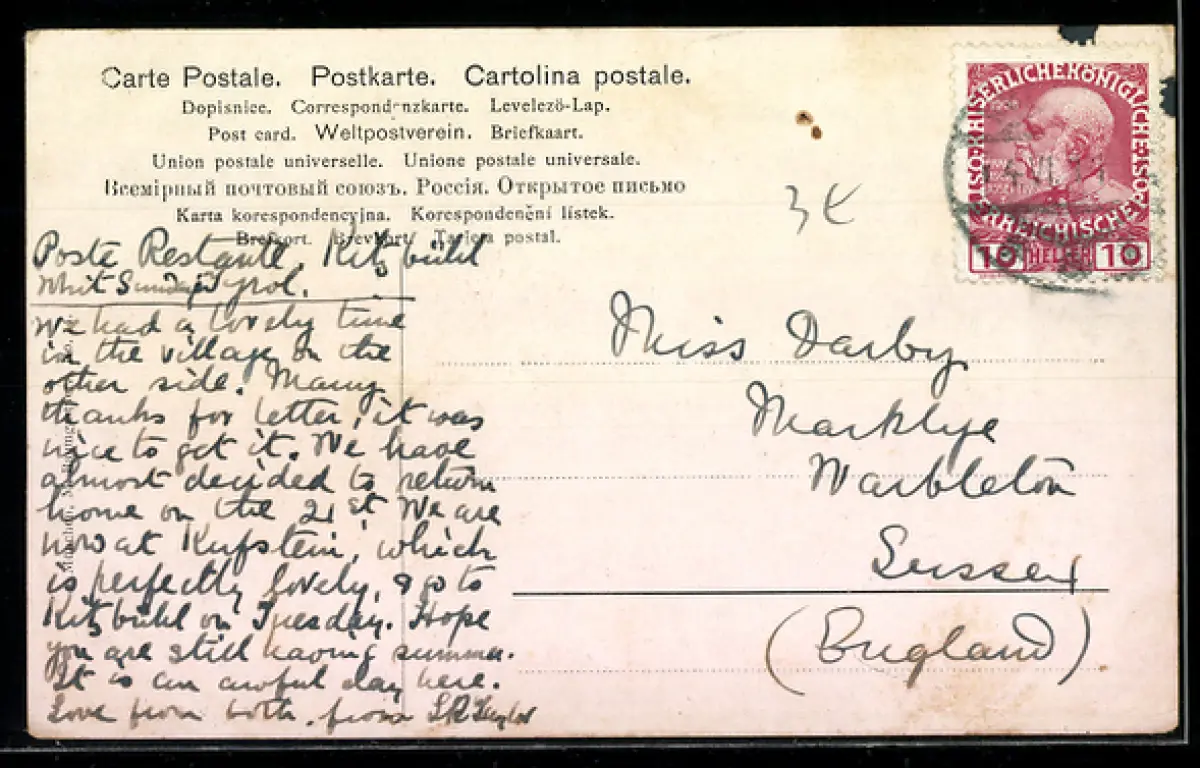 Carte Postale. Postkarte. Cartolina postale.
Dopisnice. Correspondenzkarte. Levelező-Lap.
Post card. Weltpostverein. Briefkaart.
Union postale universelle. Unione postale universale.
Всемірный почтовый союзъ. Россія. Открытое письмо
Karta korespondencyjna. Korespondenční lístek.
Brefkort. Brevkort. Tarjeta postal.
3 €
KAISERLICHE KÖNIGLICHE ÖSTERREICHISCHE POST
1908
10 HELLER 10
Poste Restante, Kitzbühl
Whit Sunday Tyrol.
We had a lovely time
in the village on the
other side. Many
thanks for letter, it was
nice to get it. We have
almost decided to return
home on the 21st We are
now at Kufstein, which
is perfectly lovely, & go to
Kitzbühl on Tuesday. Hope
you are still having summer.
It is an awful day here.
Love from both. from
Miss Darby
Marklye
Warbleton
Sussex
(England)
München